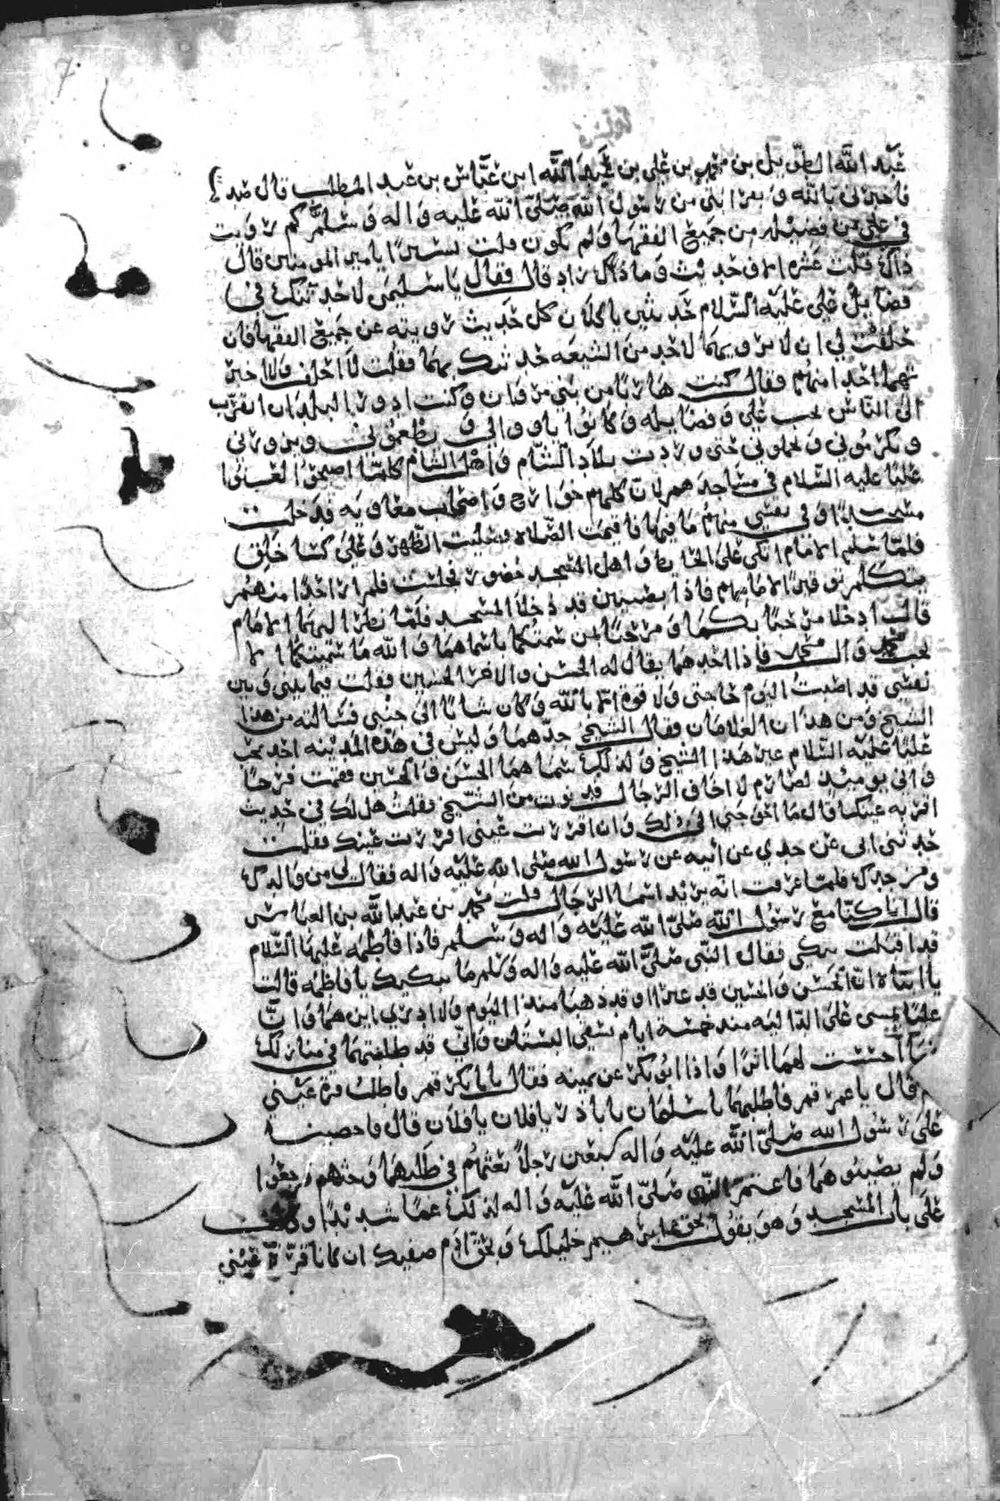 عبد الله الطويل بن محمد بن علي بن عبد الله ابن عباس بن عبد المطلب قال
فاخبرني بالله و بقرابتي من رسول الله صلى الله عليه واله وسلم كم رويت
في علي من فضيله من جميع الفقها ولم يكون قلت يسيرا يا امير المومنين قال
ذاك قلت عشره الاف حديث وما ذاك زاد قال فقال يا سليمن لاحدثنك في
فضايل علي عليه السلام حديثين ياكلان كل حديث رويته عن جميع الفقها فان
حلفت لي ان لا ترويهما لاحد من الشيعه حدثتك بهما فقلت لا احلف ولا اخبر
بهما احدا منهم فقال كنت هاربا من بني مروان وكنت ادور البلدان اتقرب
الى الناس بحب علي وفضايله وكانوا ياووني و يطعموني ويزوروني
ويكرموني ويحملوني حتى وردت بلاد الشام واهل الشام كلما اصبحوا لعنوا
عليا عليه السلام في مساجدهم لان كلهم خوارج واصحاب معاويه فدخلت
مسجدا وفي نفسي منهم ما فيها فاقيمت الصلاه فصليت الظهر وعلي كسا خلق
فلما سلم الامام اتكى على الحايط واهل المسجد حضور فجلست فلم ار احدا منهم
يتكلم توقيرا لامامهم فاذا بصبيين قد دخلا المسجد فلما نظر اليهما الامام
قال ادخلا مرحبا بكما ومرحبا بمن سميتكما باسماهما والله ما سميتكما الا
لحب محمد وال محمد فاذا احدهما يقال له الحسن والاخر الحسين فقلت فيما بيني وبين
نفسي قد اصبت اليوم حاجتي ولا قوة الا بالله وكان شابا الى جنبي فسالته من هذا
الشيخ ومن هذان الغلامان فقال الشيخ جدهما وليس في هذه المدينه احد يحب
عليا عليه السلام غير هذا الشيخ ولذلك سماهما الحسن والحسين فقمت فرحا
واني يوميذ لصارم لا اخاف الرجال فدنوت من الشيخ فقلت هل لك في حديث
اقر به عينك قال ما احوجني الى ذلك وان اقررت عيني اقررت عينك فقلت
حدثني ابي عن جدي عن ابيه عن رسول الله صلى الله عليه واله فقال لي من والدك
ومن جدك فلما عرفت انه يريد اسما الرجال قلت محمد بن عبد الله بن العباس
قال انا كنا مع رسول الله صلى الله عليه واله وسلم فاذا فاطمه عليها السلام
قد اقبلت تبكي فقال النبي صلى الله عليه واله وسلم ما يبكيك يا فاطمه قالت
يا ابتاه ان الحسن والحسين قد عبرا او قد ذهبا منذ اليوم ولا ادري اين هما وان
عليا يمسي على الداليه منذ خمسة ايام يسقي البستان واني قد طلبتهما في منازلك
فما احسست لهما اثرا واذا ابو بكر عن يمينه فقال يا ابا بكر قم فاطلب قرة عيني
ثم قال يا عمر قم فاطلبهما يا سلمان يا با ذر يا فلان يا فلان قال فاحصينا
على رسول الله صلى الله عليه واله سبعين رجلا بعثهم في طلبهما وحثهم فرجعوا
ولم يصيبوهما فاغتم النبي صلى الله عليه واله لذلك غما شديدا ووقف
على باب المسجد وهو يقول بحق ابراهيم خليلك وبحق ادم صفيك ان كانا قرة عيني